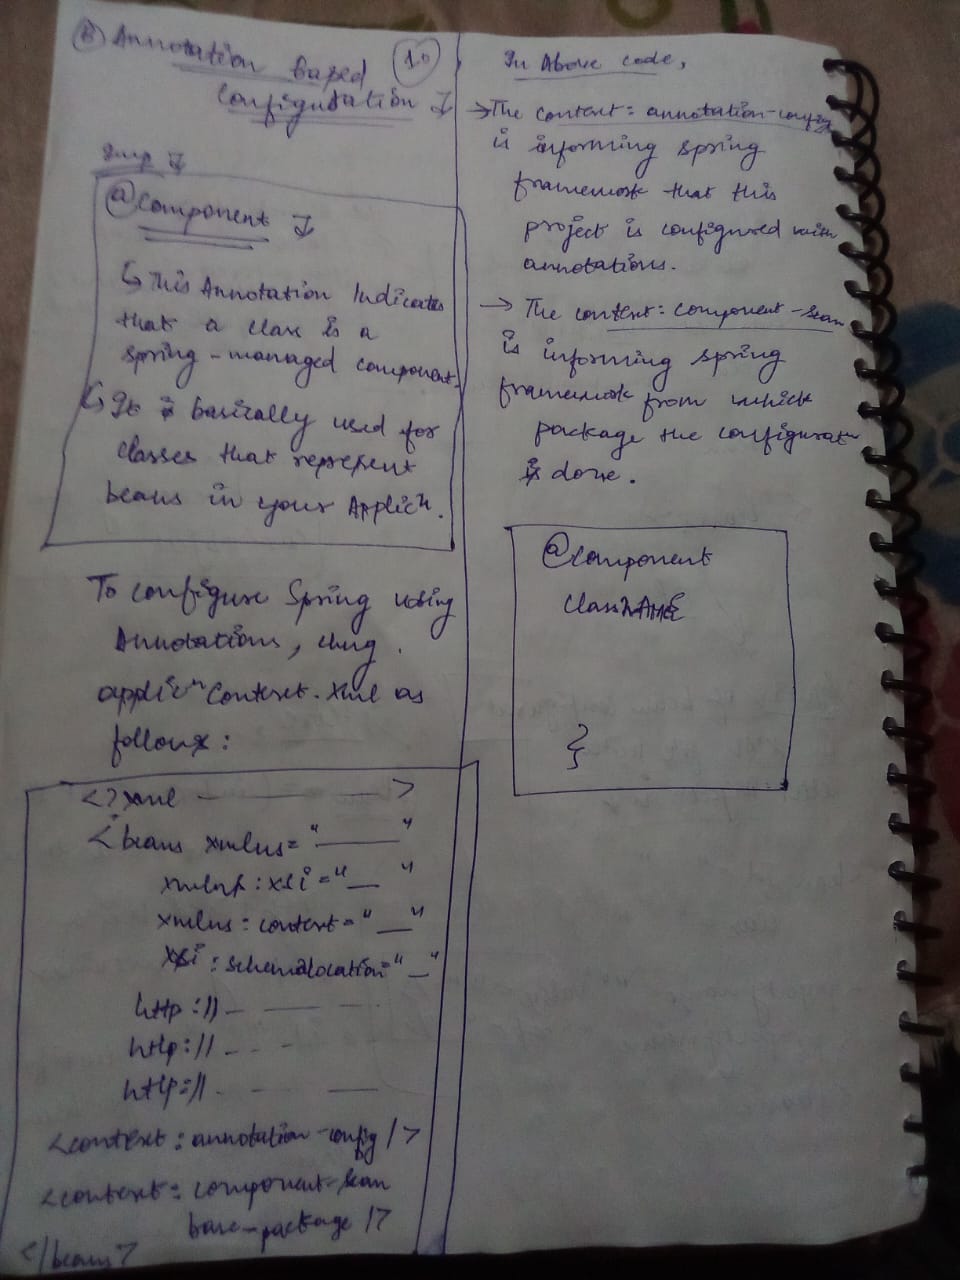 (B) Annotation based
1.0
Configuration ↓
Imp ↓
@Component ↓
↳ This Annotation Indicates
that a class is a
spring-managed component.
↳ It is basically used for
classes that represent
beans in your Applicn.
To configure Spring using
Annotations, chng.
applicnContext.xml as
follows:
<?xml ——— >
<beans xmlns="___"
xmlns:xsi="__"
xmlns:context="__"
xsi:schemalocation="_"
http://_ __ __
http://_ _ _
http://. _ __
<context:annotation-config/>
<context:component-scan
base-package/>
</beans>
In Above code,
→ The context:annotation-config
is informing spring
framework that this
project is configured with
annotations.
→ The context:component-scan
is informing spring
framework from which
package the configuratn
is done.
@Component
Class NAME
}